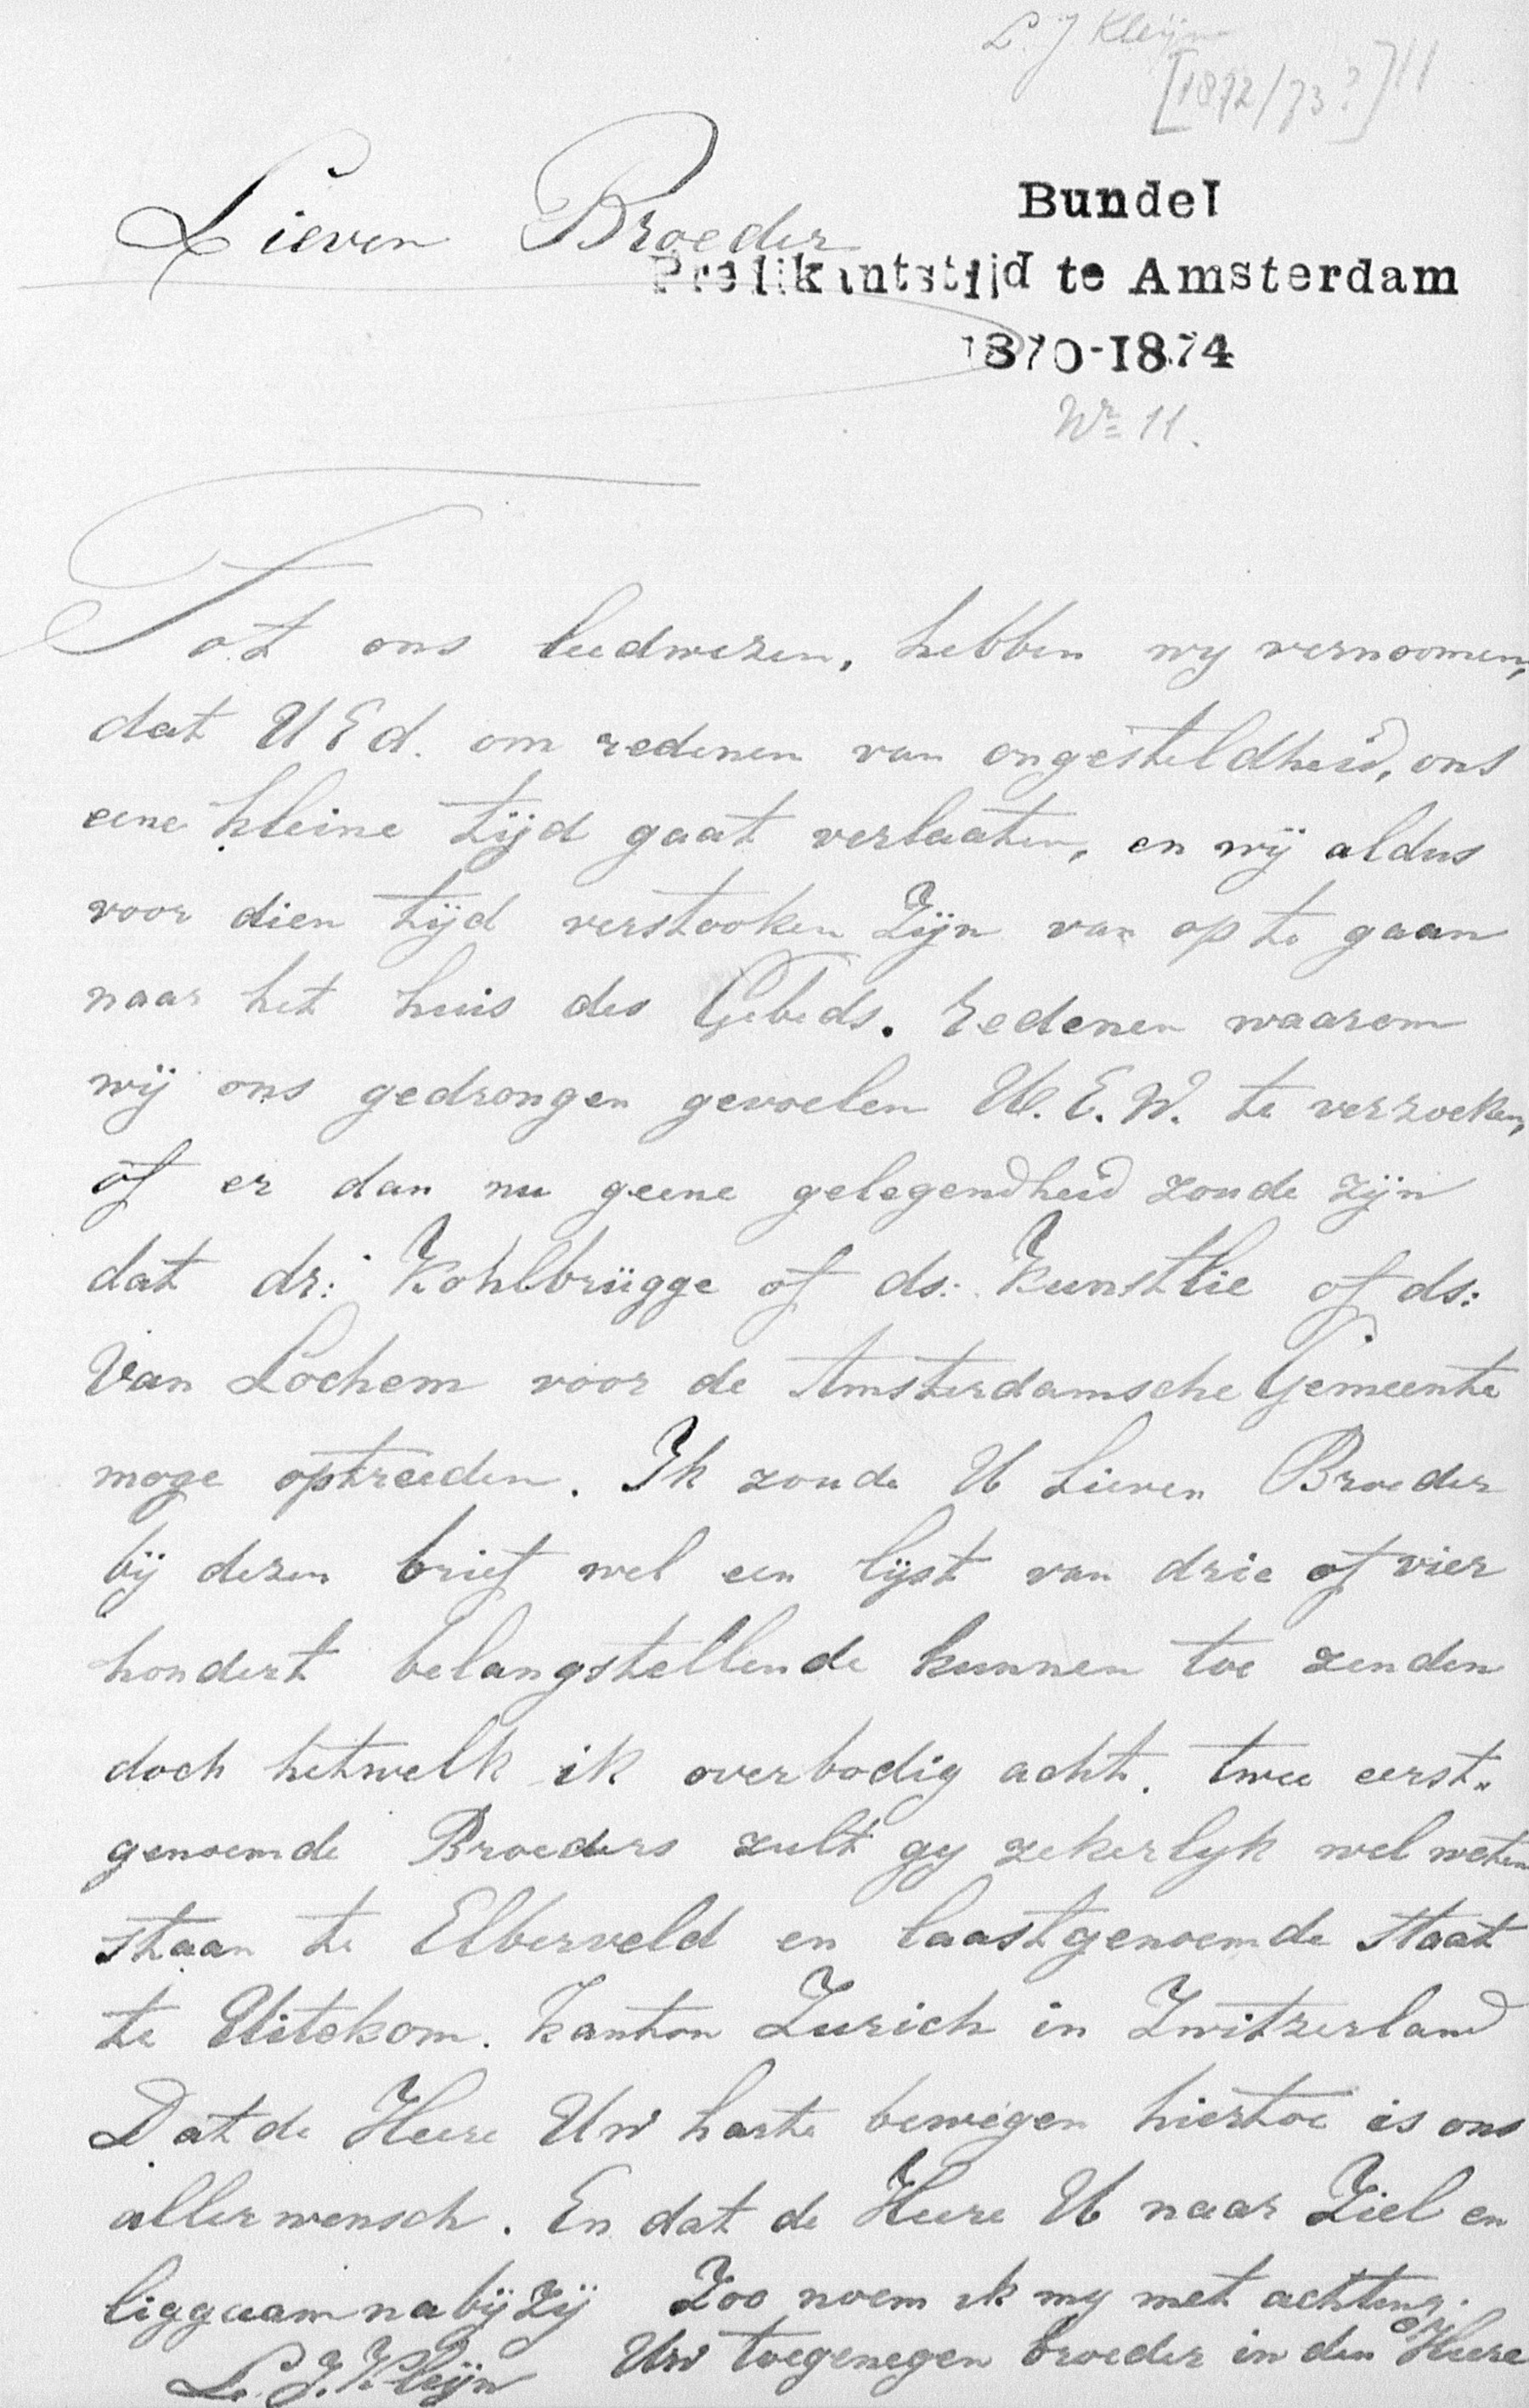 L. J Kleijn
[1872/73?] 11
Bundel
Lieven Broeder
Predikantstijd te Amsterdam
1870-1874
Nr 11.
Tot ons leedwezen, hebben wy vernoomen,
dat UEd. om redenen van ongesteldheid, ons
eene kleine tijd gaat verlaaten, en wij aldus
voor dien tijd verstooken Zijn van op te gaan
naar het huis des Gebeds. redenen waarom
wij ons gedrongen gevoelen U.E.W. te verzoeken,
of er dan nu geene gelegendheid zoude zijn
dat dr: Kohlbrügge of ds: Kunstlie of ds:
Van Lochem voor de Amsterdamsche Gemeente
moge optreeden. Ik zoude U Lieven Broeder
bij dezen brief wel een lijst van drie of vier
hondert belangstellende kunnen toe zenden
doch hetwelk ik overbodig acht. twee eerst„
genoemde Broeders zult gy zekerlyk wel weten
staan te Elberveld en laastgenoemde staat
te Uitekom. kanton Zurich in Zwitzerland
Dat de Heere Uw harte bewegen hiertoe is ons
aller wensch. En dat de Heere U naar Ziel en
liggaam nabij Zij Zoo noem ik my met achting.
L. J. Kleijn Uw toegenegen broeder in den Heere